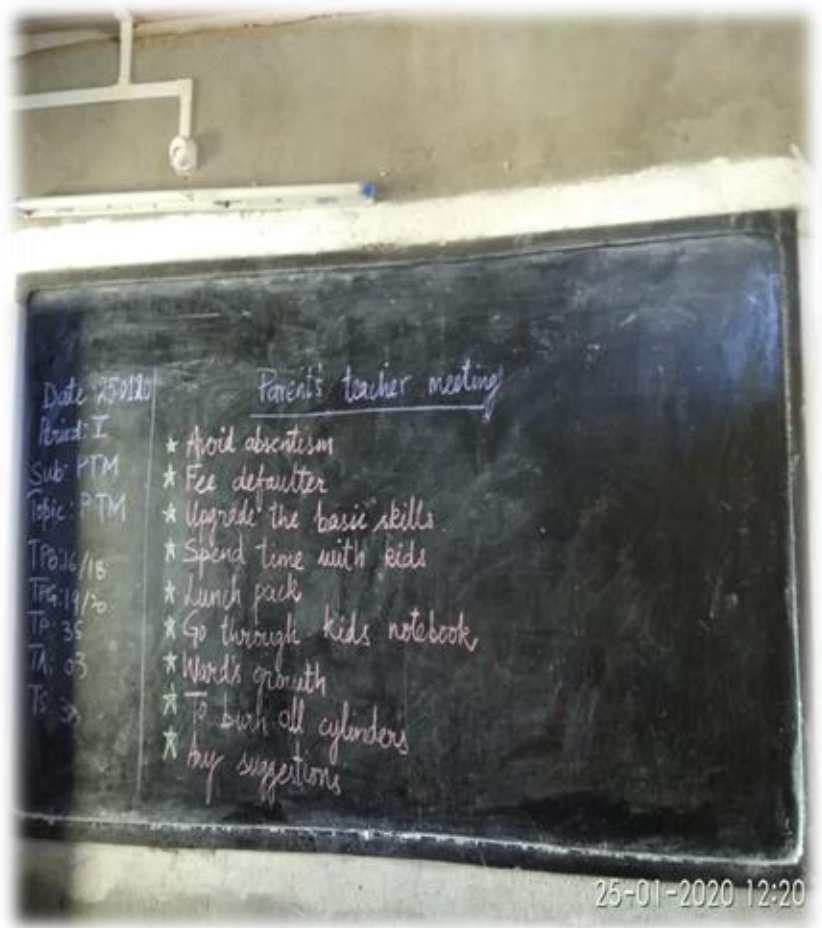 Date: 250120
Period: I
Sub: PTM
Topic: PTM
TPB:16/18
TPG:19/20
TP: 35
TA: 03
TS: 38
Parent's teacher meeting
★ Avoid absentism
★ Fee defaulter
★ Upgrade the basic skills.
★ Spend time with kids
★ Lunch pack
★ Go through kids notebook,
★ Ward's growth
★ To burn all cylinders
★ Any suggestions
25-01-2020 12:20